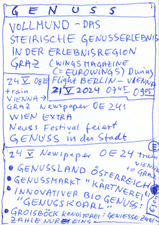 GENUSS
VOLLMUND - DAS
STEIRISCHE GENUSSERLEBNIS
IN DER ERLEBNISREGION
GRAZ (WINGSMAGAZINE
(= EUROWINGS) During
24 V 0E flight BERLIN - VIENNA
train 21 V 2024 0745 0905
VIENNA →
GRAZ Newspaper OE 24:
WIEN EXTRA
Neues Festival feiert
GENUSS in der Stadt
24 V Newspaper OE 24 train
to GRAZ
• GENUSSLAND ÖSTERREICH
• GENUSSMARKT "KÄRTNEREI"
• INNOVATIVER BIO GENUSS:
"GENUSSKORAL"
• GROISBÖCK Konditorei: GENIESSE ZWEI
ZAHLE NUR EINS